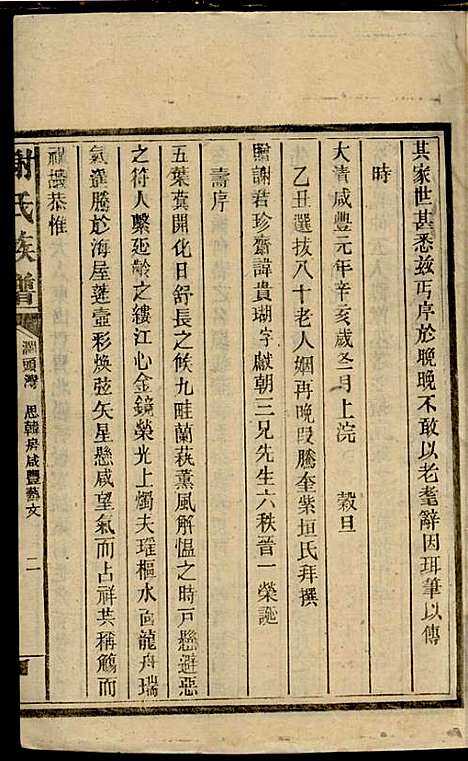 其家世甚悉茲丐序於晚晚不敢以老耄辭因珥筆以傳
時
大清咸豐元年辛亥歲冬月上浣　穀旦
乙丑選拔八十老人姻再晚段騰奎紫垣氏拜撰
贈謝君珍齋諱貴瑚字獻朝三兄先生六秩晉一榮誕
壽序
五葉蓂開化日舒長之候九畦蘭萩薰風解慍之時戶懸避惡
之符人繫延齡之縷江心金鏡榮光上燭夫瑤樞水面龍舟瑞
氣遙騰於海屋蓬壺彩煥弦矢星懸咸望氣而占祥共稱觴而
祝嘏恭惟
謝氏族譜
灣頭灣　思韓房咸豐藝文　二